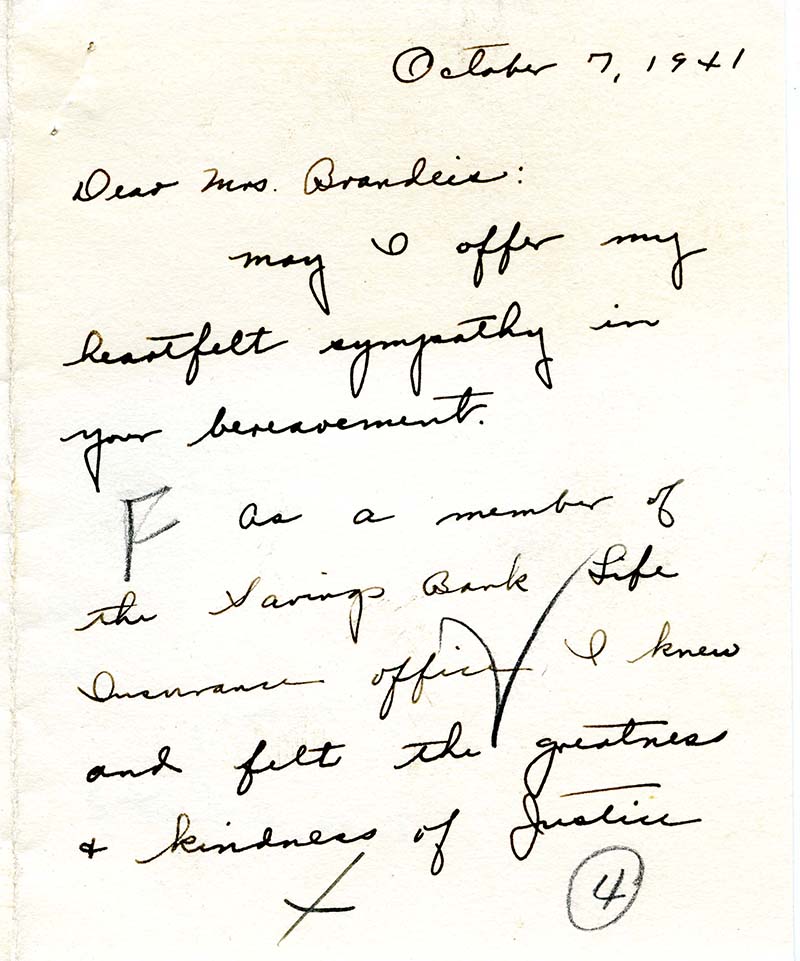 October 7, 1941
Dear Mrs. Brandeis:
May I offer my
heartfelt sympathy in
your bereavement.
F As a member of
the Savings Bank Life
Insurance office I knew
and felt the greatness
& kindness of Justice
4